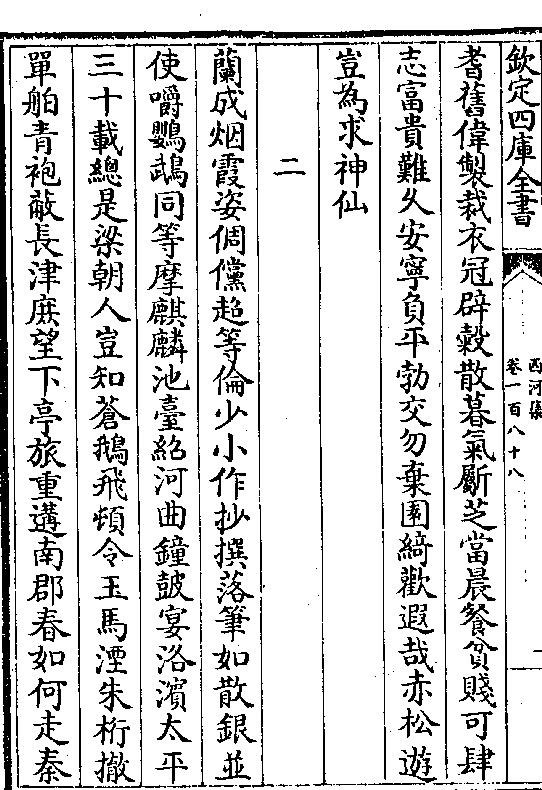 欽定四庫全書
西河集
卷一百八十八
耆舊偉製裁衣冠辟穀散暮氣斸芝當晨餐貧賤可肆
志富貴難久安寧負平勃交勿棄園綺歡遐哉赤松遊
豈為求神仙
二
蘭成烟霞姿倜儻超等倫少小作抄撰落筆如散銀並
使嚼鸚鵡同等摩麒麟池臺絕河曲鐘皷宴洛濱太平
三十載總是梁朝人豈知蒼鵝飛頓令玉馬湮朱桁撤
單舶青袍蔽長津庶望下亭旅重遘南郡春如何走秦